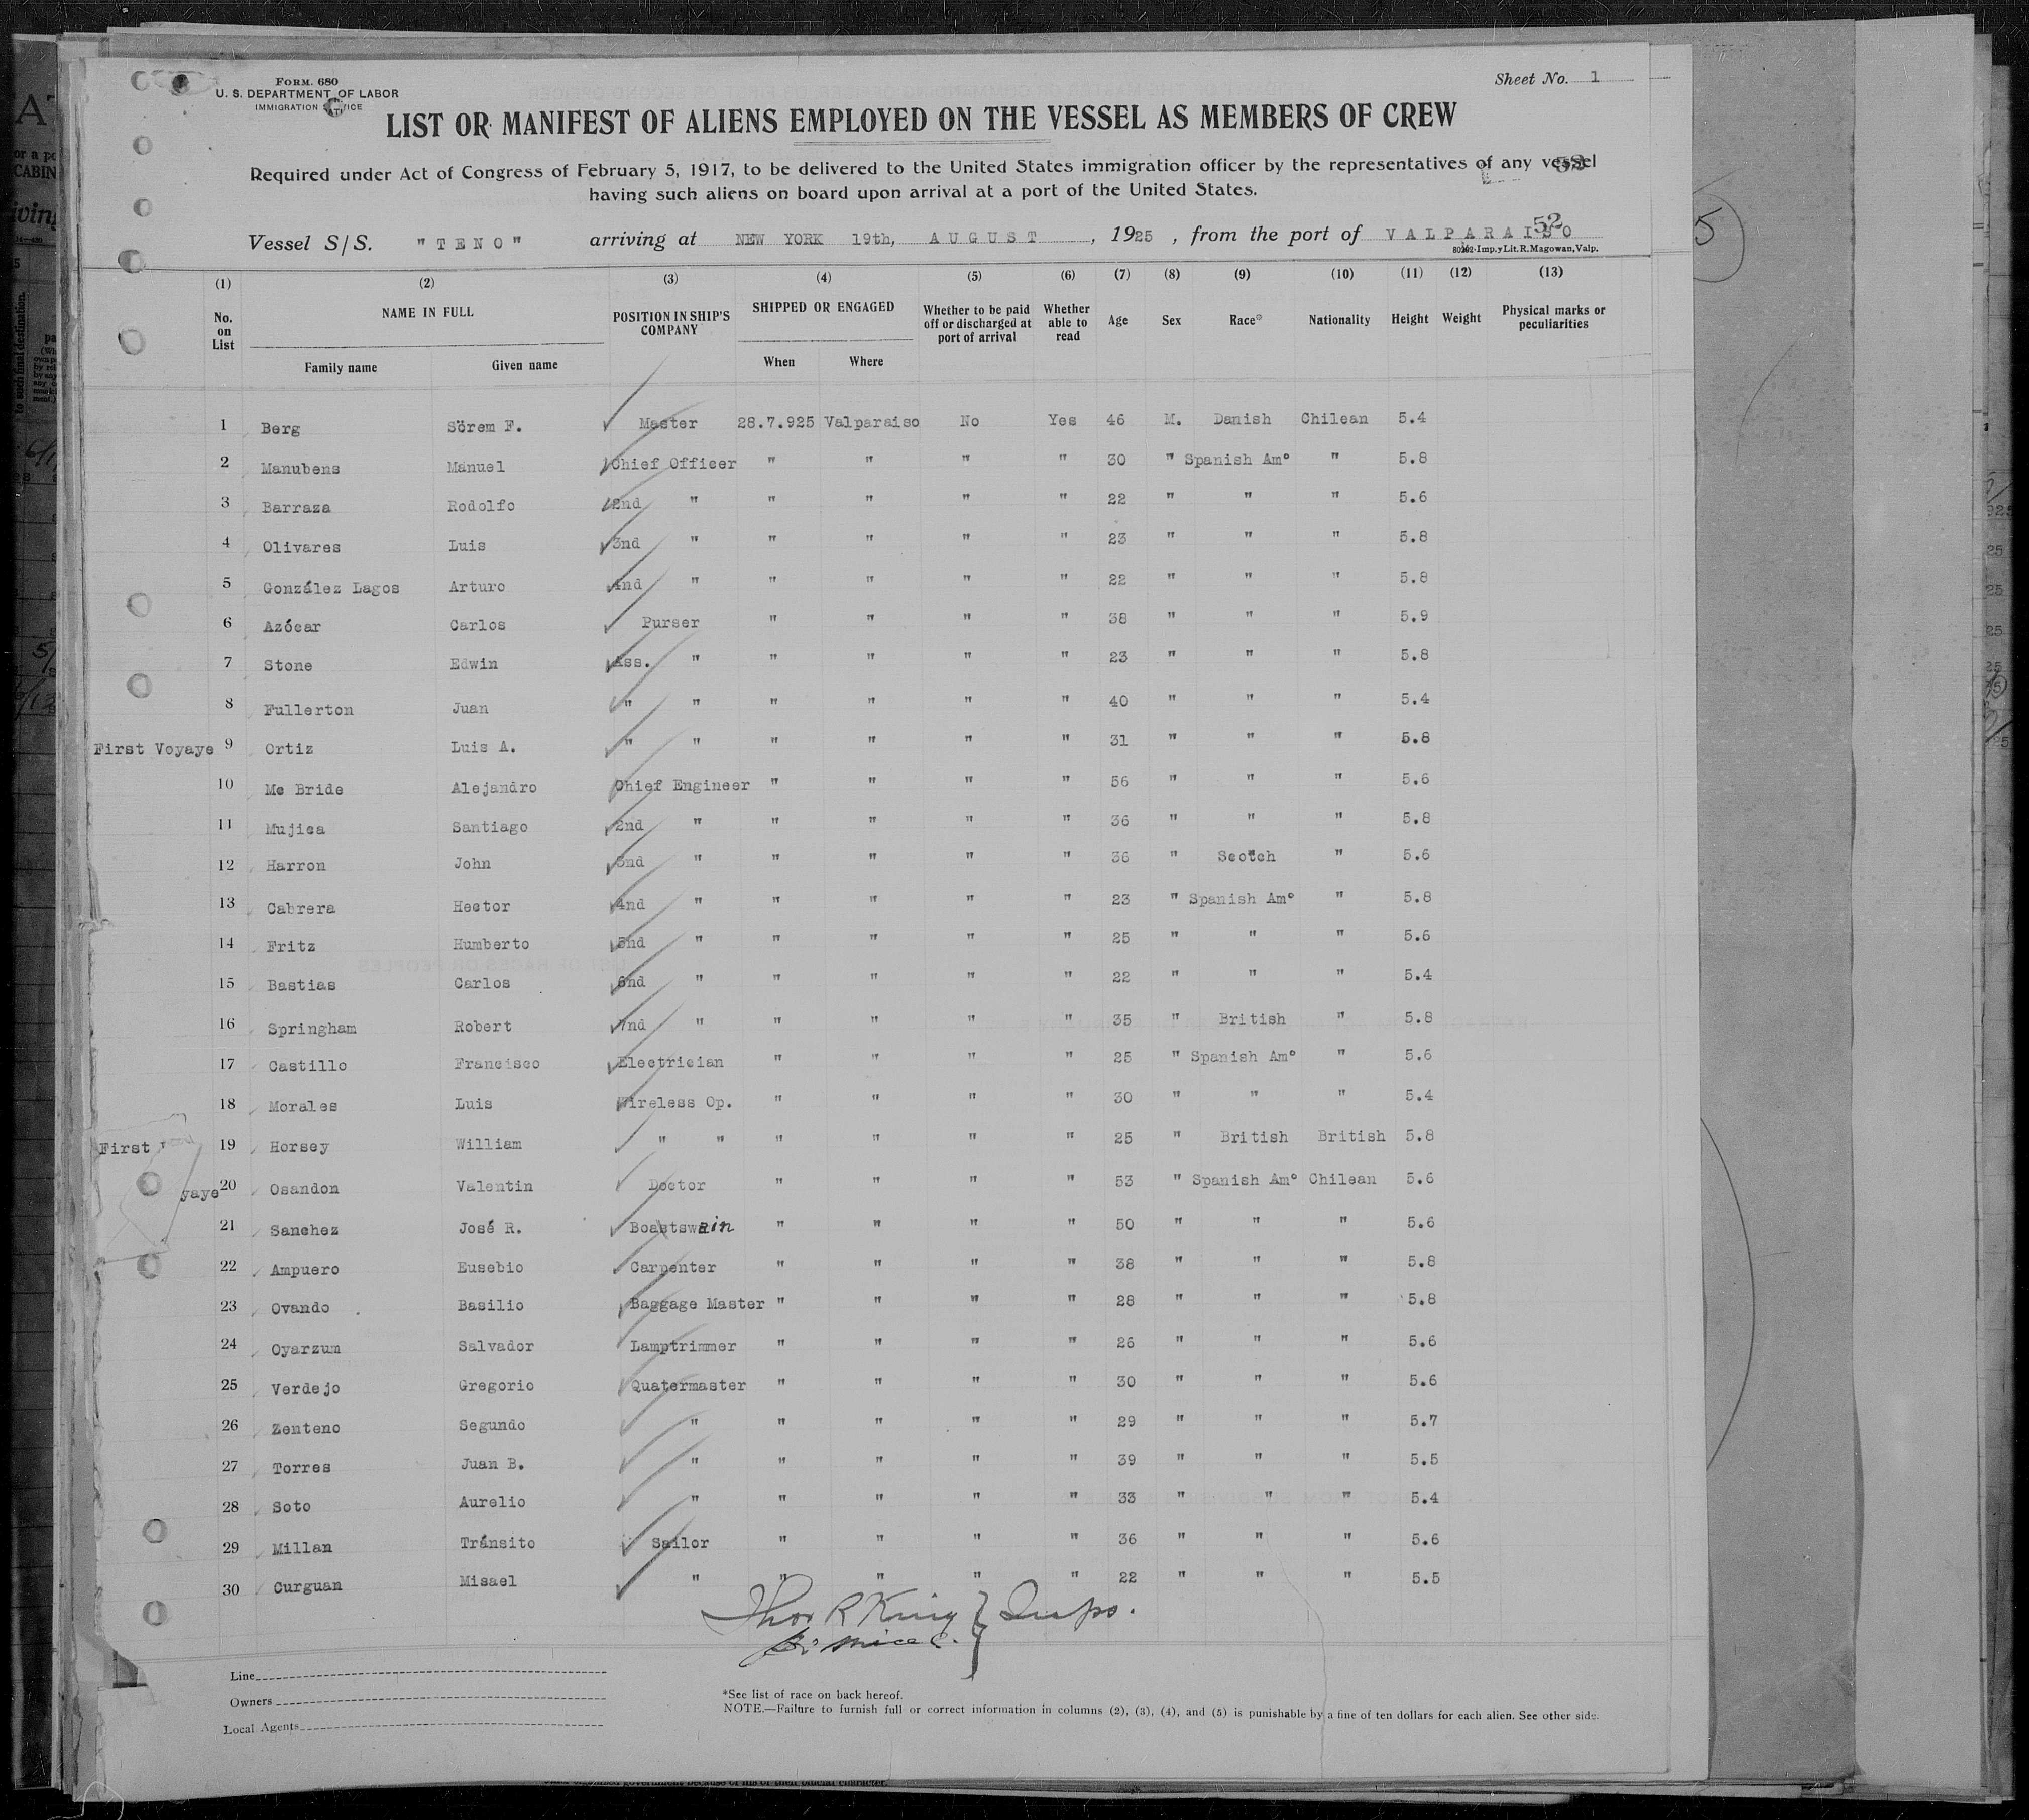 Form. 680
U. S. DEPARTMENT OF LABOR
IMMIGRATION
Sheet No. 1
LIST OR MANIFEST OF ALIENS EMPLOYED ON THE VESSEL AS MEMBERS OF CREW
Required under Act of Congress of February 5, 1917, to be delivered to the United States immigration officer by the representatives of any vessel
having such aliens on board upon arrival at a port of the United States.
52
Vessel S/S. "TENO" arriving at NEW YORK 19th, AUGUST, 1925, from the port of VALPARAISO
Imp. y Lit. R. Magowan, Valp.
(1) (2) (3) (4) (5) (6) (7) (8) (9) (10) (11) (12) (13)
No. on List NAME IN FULL POSITION IN SHIP'S COMPANY SHIPPED OR ENGAGED Whether to be paid off or discharged at port of arrival Whether able to read Age Sex Race* Nationality Height Weight Physical marks or peculiarities
Family name Given name When Where
1 Berg Sörem F. Master 28.7.925 Valparaiso No Yes 46 M. Danish Chilean 5.4
2 Manubens Manuel Chief Officer " " " " 30 " Spanish Am° " 5.8
3 Barraza Rodolfo 2nd " " " " " 22 " " " 5.6
4 Olivares Luis 3nd " " " " " 23 " " " 5.8
5 González Lagos Arturo 4nd " " " " " 22 " " " 5.8
6 Azócar Carlos Purser " " " " 38 " " " 5.9
7 Stone Edwin Ass. " " " " " 23 " " " 5.8
8 Fullerton Juan " " " " " " 40 " " " 5.4
First Voyaye 9 Ortiz Luis A. " " " " " " 31 " " " 5.8
10 Mc Bride Alejandro Chief Engineer " " " " 56 " " " 5.6
11 Mujica Santiago 2nd " " " " " 36 " " " 5.8
12 Harron John 3nd " " " " " 36 " Scotch " 5.6
13 Cabrera Hector 4nd " " " " " 23 " Spanish Am° " 5.8
14 Fritz Humberto 5nd " " " " " 25 " " " 5.6
15 Bastias Carlos 6nd " " " " " 22 " " " 5.4
16 Springham Robert 7nd " " " " " 35 " British " 5.8
17 Castillo Francisco Electrician " " " " 25 " Spanish Am° " 5.6
18 Morales Luis Wireless Op. " " " " 30 " " " 5.4
First 19 Horsey William " " " " " " 25 " British British 5.8
yaye 20 Osandon Valentin Doctor " " " " 53 " Spanish Am° Chilean 5.6
21 Sanchez José R. Boatswain " " " " 50 " " " 5.6
22 Ampuero Eusebio Carpenter " " " " 38 " " " 5.8
23 Ovando Basilio Baggage Master " " " " 28 " " " 5.8
24 Oyarzun Salvador Lamptrimmer " " " " 26 " " " 5.6
25 Verdejo Gregorio Quatermaster " " " " 30 " " " 5.6
26 Zenteno Segundo " " " " " 29 " " " 5.7
27 Torres Juan B. " " " " " 39 " " " 5.5
28 Soto Aurelio " " " " " 33 " " " 5.4
29 Millan Tránsito Sailor " " " " 36 " " " 5.6
30 Curguan Misael " " " " " 22 " " " 5.5
Thos R King } Insps.
Line
Owners
Local Agents
*See list of race on back hereof.
NOTE.—Failure to furnish full or correct information in columns (2), (3), (4), and (5) is punishable by a fine of ten dollars for each alien. See other side.